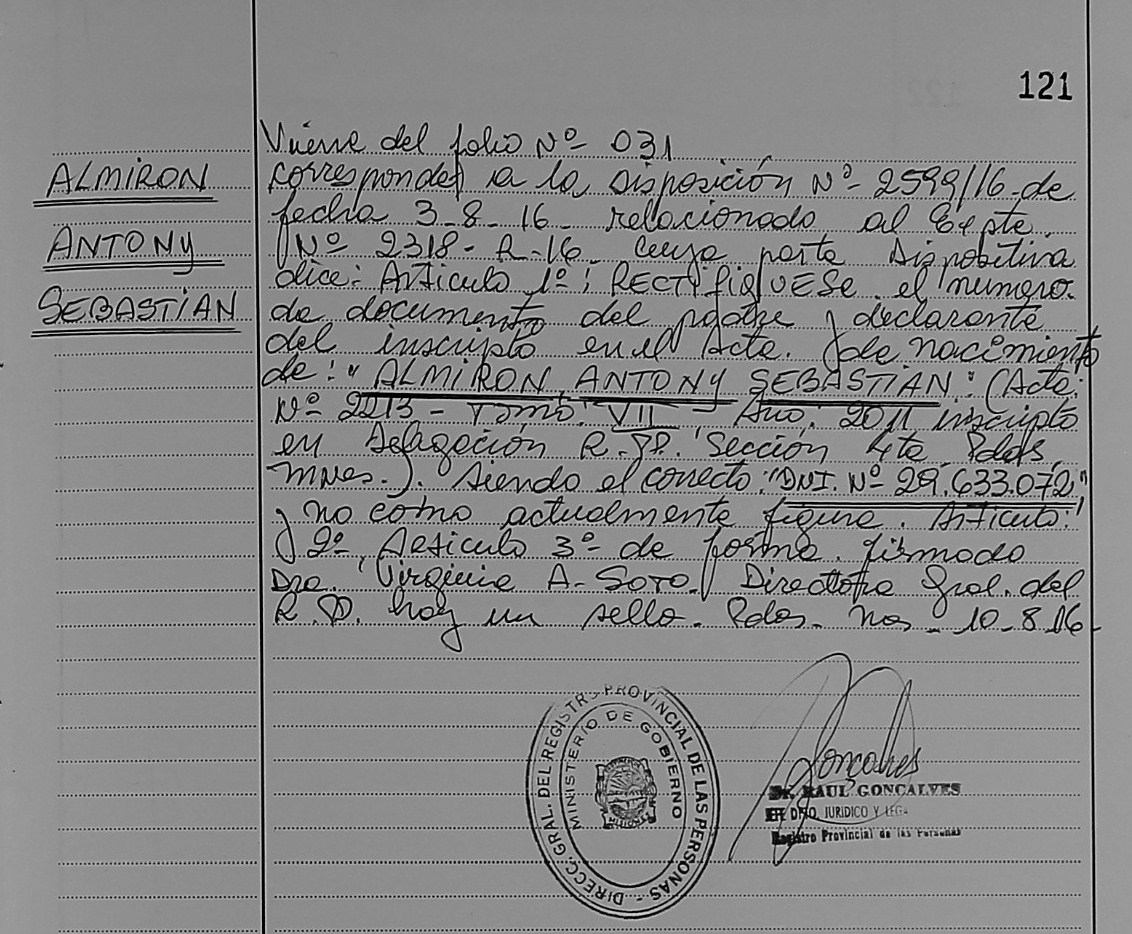 121
ALMIRON
ANTONY
SEBASTIAN
Viene del folio Nº 031
corresponde a la disposición Nº 2599/16 de
fecha 3-8-16 relacionado al Expte.
Nº 2318-R-16 cuya parte dispositiva
dice: Articulo 1º: RECTIFIQUESE el numero
de documento del padre y declarante
del inscripto en el Acta de nacimiento
de: "ALMIRON ANTONY SEBASTIAN" (Acta:
Nº 2213 - Tomo: VII - Año: 2011 inscripto
en Delegación R.P.P. Sección 4ta Pdas
Mnes.). Siendo el correcto: "DNI. Nº 29.633.072"
y no como actualmente figura. Articulo:
2º, Articulo 3º de forma. firmado
Dra. Virginia A. Soto. Directora Gral. del
R.P. hay un sello. Pdas. Mns 10-8-16-
DIRECC. GRAL. DEL REGISTRO PROVINCIAL DE LAS PERSONAS
MINISTERIO DE GOBIERNO
MISIONES
Goncalves
Dr. RAUL GONCALVES
JEFE DPTO. JURIDICO Y LEGA
Registro Provincial de las Personas